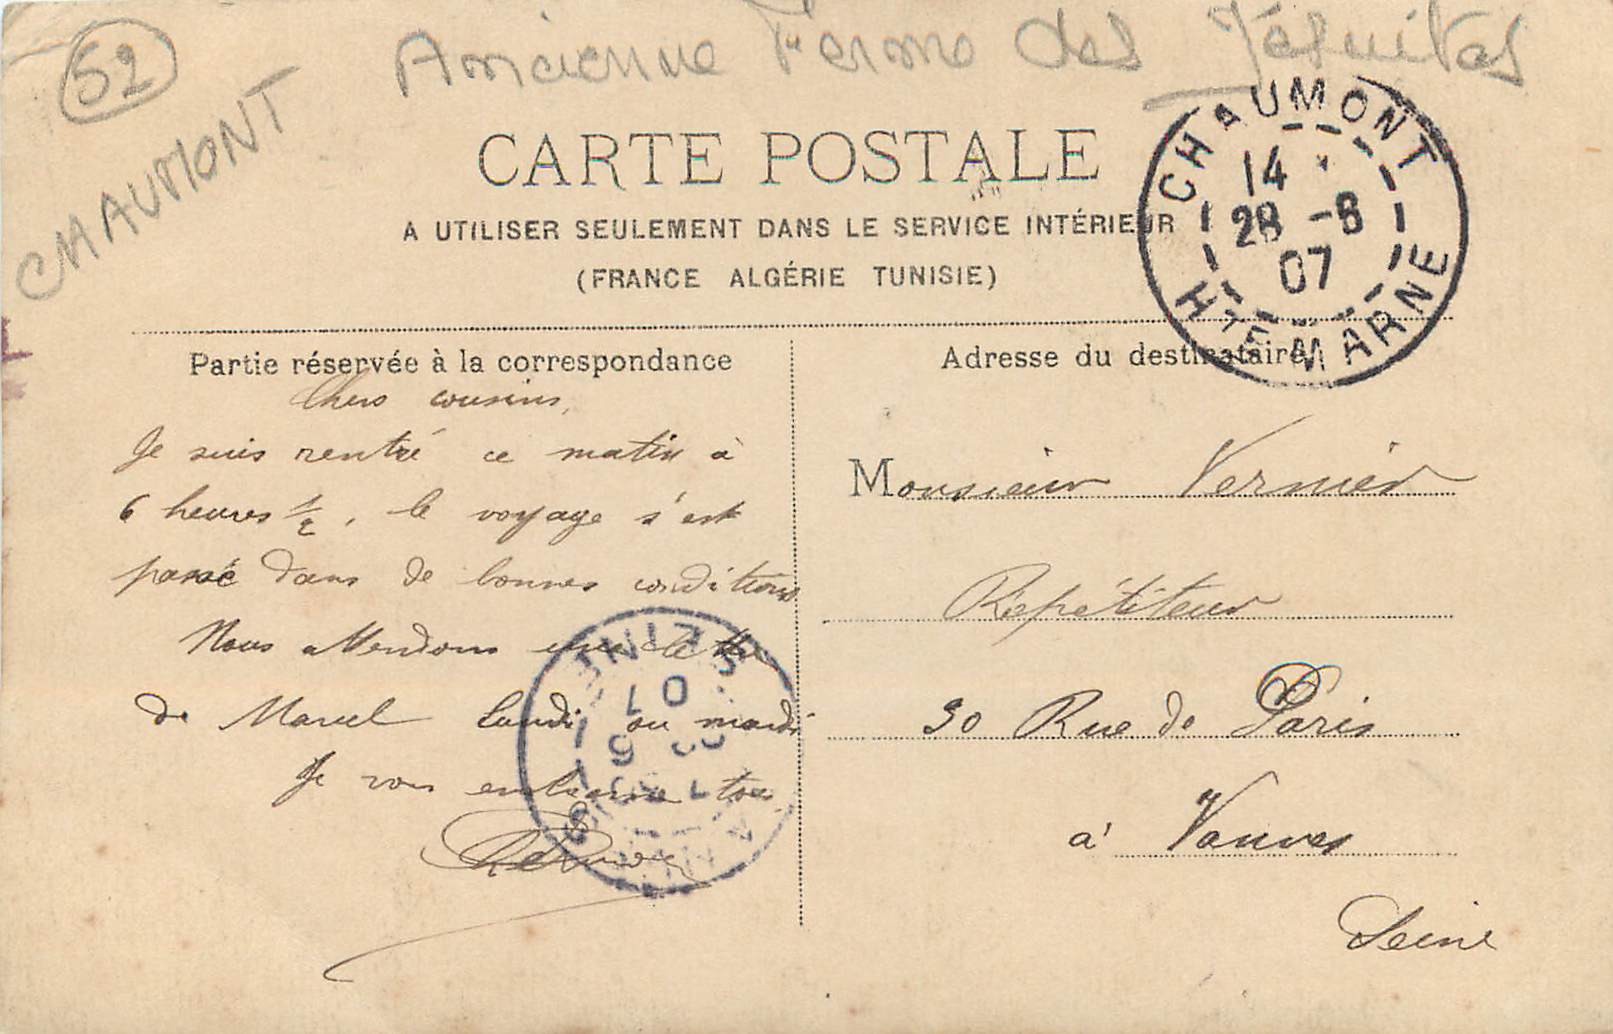 52
CHAUMONT
Ancienne Ferme des Jésuites
CARTE POSTALE
A UTILISER SEULEMENT DANS LE SERVICE INTÉRIEUR
(FRANCE ALGÉRIE TUNISIE)
CHAUMONT
14
28 -8
07
HTE MARNE
Partie réservée à la correspondance
Chers cousins,
Je suis rentré ce matin à
6 heures 1/2, le voyage s'est
passé dans de bonnes conditions
Nous attendons une lettre
de Marcel lundi ou mardi
Je vous embrasse tous
SEINE
07
Adresse du destinataire
Monsieur Vernier
Répétiteur
30 Rue de Paris
à Vanves
Seine